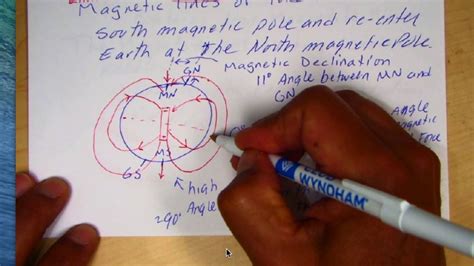 Magnetic lines of force
South magnetic pole and re-enter
Earth at the North magnetic Pole.
GN
Magnetic Declination
11° Angle between MN and
GN
MN
Angle
Magnetic
Force
MS
GS
high
290° Angle
WYNDHAM